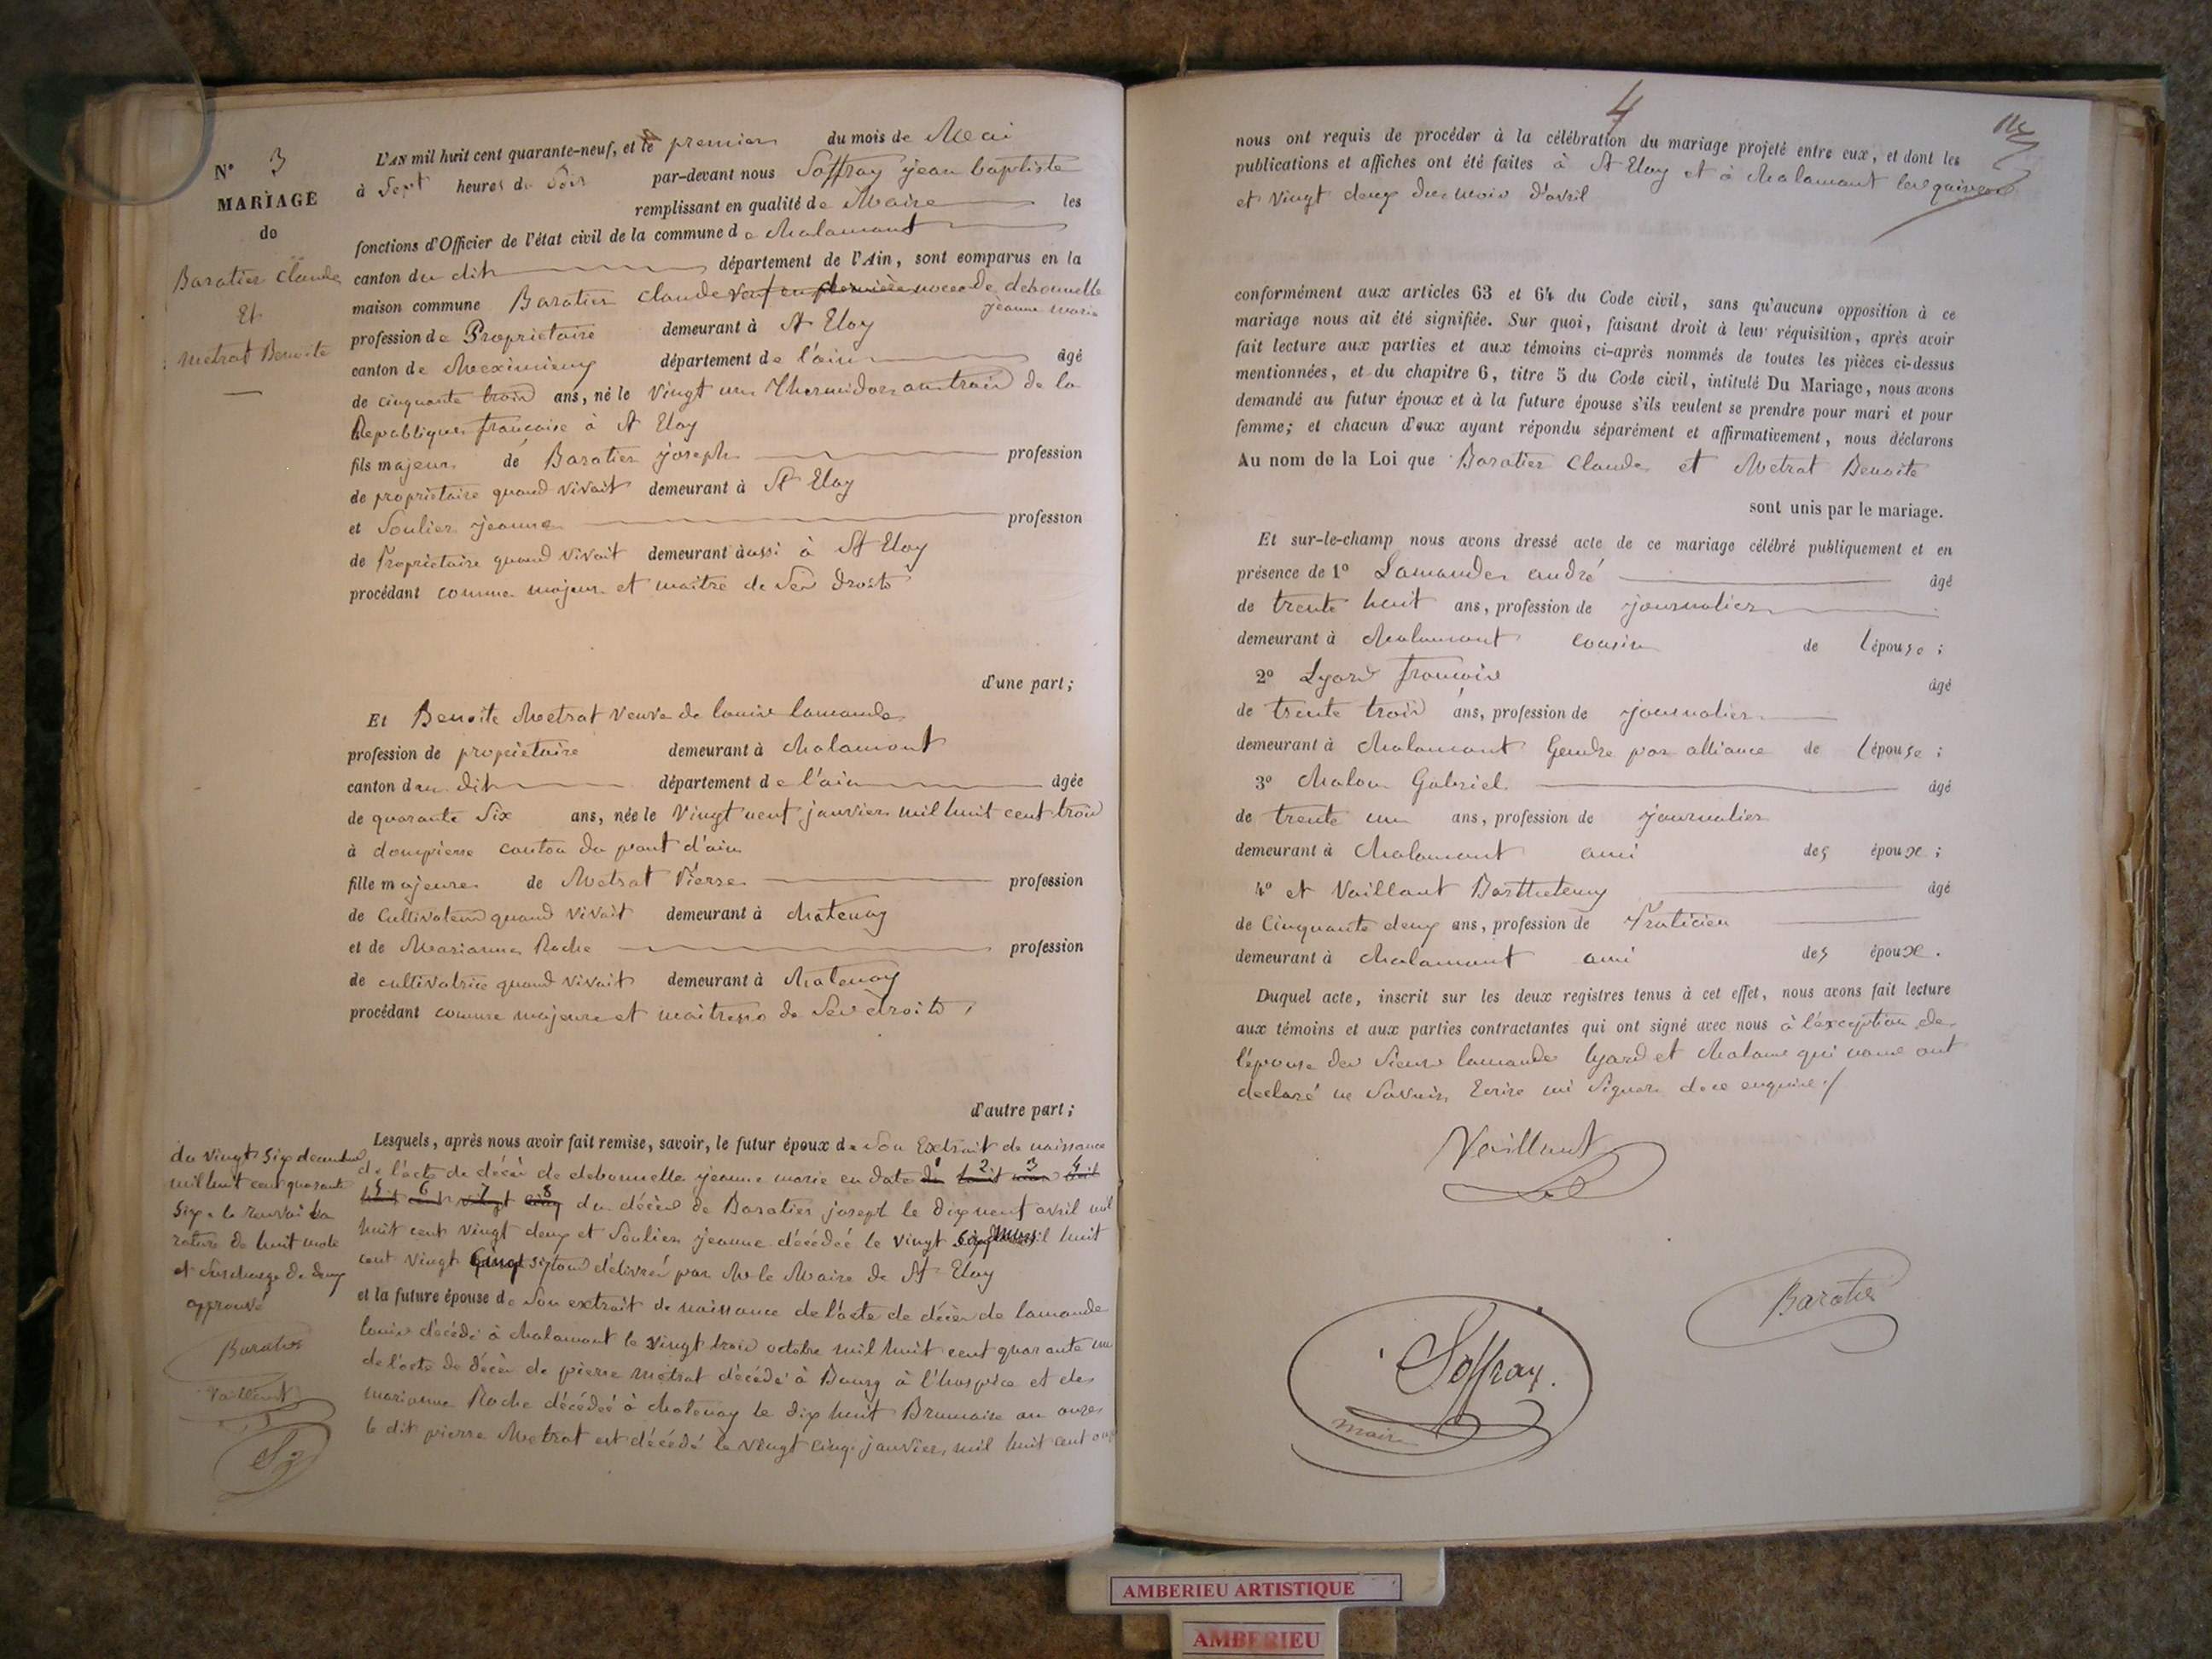 N° 3
MARIAGE
de
Baratier Claude
Et
Metrat Benoite
L'AN mil huit cent quarante-neuf, et le premier du mois de Mai
à Sept heures du Soir par-devant nous Soffray jean baptiste
remplissant en qualité de Maire les
fonctions d'Officier de l'état civil de la commune de Chalamont
canton du dit département de l'Ain, sont comparus en la
maison commune Baratier Claude veuf en première noces de debonnelle
jeanne marie
profession de Propriétaire demeurant à St Eloy
canton de Meximieux département de l'ain âgé
de cinquante trois ans, né le vingt un Thermidor an trois de la
Republique francaise à St Eloy
fils majeur de Baratier joseph profession
de propriétaire quand vivait demeurant à St Eloy
et Soulier jeanne profession
de Propriétaire quand vivait demeurant aussi à St Eloy
procédant comme majeur et maitre de Ses droits
d'une part;
Et Benoite Metrat veuve de louis lamande
profession de propriétaire demeurant à Chalamont
canton du dit département de l'ain âgée
de quarante Six ans, née le vingt neuf janvier mil huit cent trois
à dompierre canton du pont d'ain
fille majeure de Metrat Pierre profession
de Cultivateur quand vivait demeurant à Chatenay
et de Marianne Roche profession
de cultivatrice quand vivait demeurant à Chatenay
procédant comme majeure et maitresse de Ses droits,
d'autre part;
Lesquels, après nous avoir fait remise, savoir, le futur époux de Son Extrait de naissance
de l'acte de décès de debonnelle jeanne marie en date du 1 2 3 4
5 6 7 8 du décès de Baratier josept le dix neuf avril mil
huit cent vingt deux et Soulier jeanne décédée le vingt Six mars mil huit
cent vingt cinq six tous délivrés par Mr le Maire de St Eloy
et la future épouse de Son extrait de naissance de l'acte de décès de lamande
louis décédé à Chalamont le vingt trois octobre mil huit cent quarante un
de l'acte de décès de pierre metrat décédé à Bourg à l'hospice et de
marianne Roche décédée à Chatenay le dix huit Brumaire an onze
le dit pierre Metrat est décédé le vingt cinq janvier mil huit cent onze
du vingt Six decembre
mil huit cent quarante
Six. le renvoi La
rature de huit mots
et Surcharge de deux
approuvé
Baratier
Vaillant
4
nous ont requis de procéder à la célébration du mariage projeté entre eux, et dont les
publications et affiches ont été faites à St Eloy et à Chalamont les quinze
et vingt deux du mois d'avril
conformément aux articles 63 et 64 du Code civil, sans qu'aucune opposition à ce
mariage nous ait été signifiée. Sur quoi, faisant droit à leur réquisition, après avoir
fait lecture aux parties et aux témoins ci-après nommés de toutes les pièces ci-dessus
mentionnées, et du chapitre 6, titre 5 du Code civil, intitulé Du Mariage, nous avons
demandé au futur époux et à la future épouse s'ils veulent se prendre pour mari et pour
femme; et chacun d'eux ayant répondu séparément et affirmativement, nous déclarons
Au nom de la Loi que Baratier Claude et Metrat Benoite
sont unis par le mariage.
Et sur-le-champ nous avons dressé acte de ce mariage célébré publiquement et en
présence de 1° Lamande andré âgé
de trente huit ans, profession de journalier
demeurant à Chalamont cousin de l'épouse;
2° Lyard francois âgé
de trente trois ans, profession de journalier
demeurant à Chalamont Gendre par alliance de l'épouse;
3° Chalon Gabriel âgé
de trente un ans, profession de journalier
demeurant à Chalamont ami des époux;
4° et Vaillant Barthelemy âgé
de Cinquante deux ans, profession de Praticien
demeurant à Chalamont ami des époux.
Duquel acte, inscrit sur les deux registres tenus à cet effet, nous avons fait lecture
aux témoins et aux parties contractantes qui ont signé avec nous à l'exception de
l'épouse des Sieurs lamande lyard et Chalon qui nous ont
declaré ne Savoir Ecrire ni Signer de ce enquis./
Vaillant
Baratier
Soffray
maire
AMBERIEU ARTISTIQUE
AMBERIEU